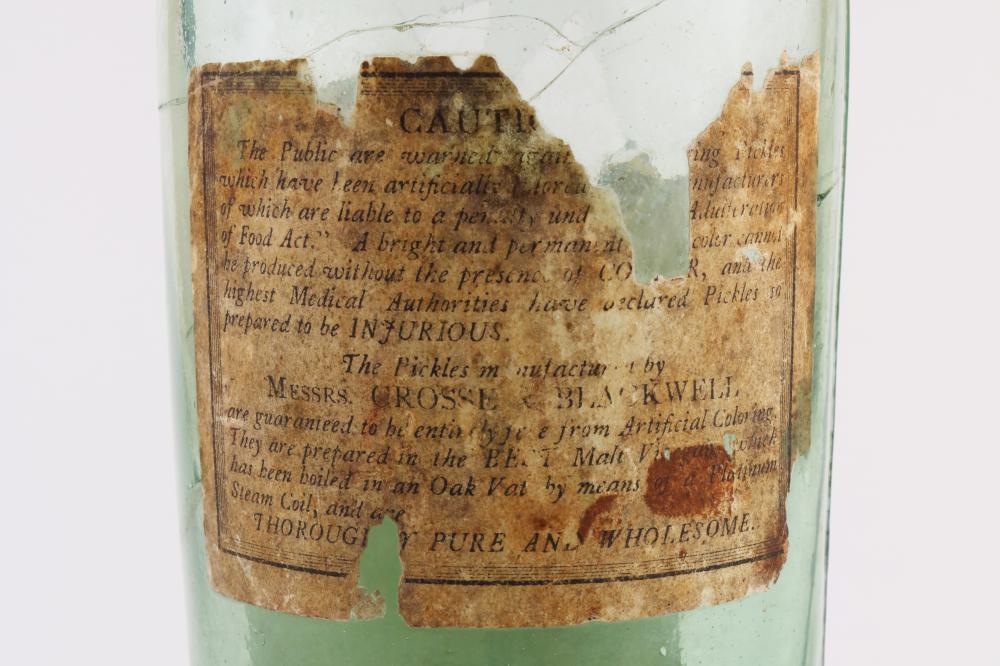 CAUTI
The Public are warned again ing Pickles
which have been artificially colored nufacturers
of which are liable to a penalty und Adulteration
of Food Act." A bright and permanent color cannot
be produced without the presence of CO ER, and the
highest Medical Authorities have declared Pickles so
prepared to be INJURIOUS.
The Pickles manufactured by
MESSRS. CROSSE & BLACKWELL
are guaranteed to be entirely free from Artificial Coloring.
They are prepared in the BEST Malt Vinegar, which
has been boiled in an Oak Vat by means of a Platinum
Steam Coil, and are
THOROUGHLY PURE AND WHOLESOME.